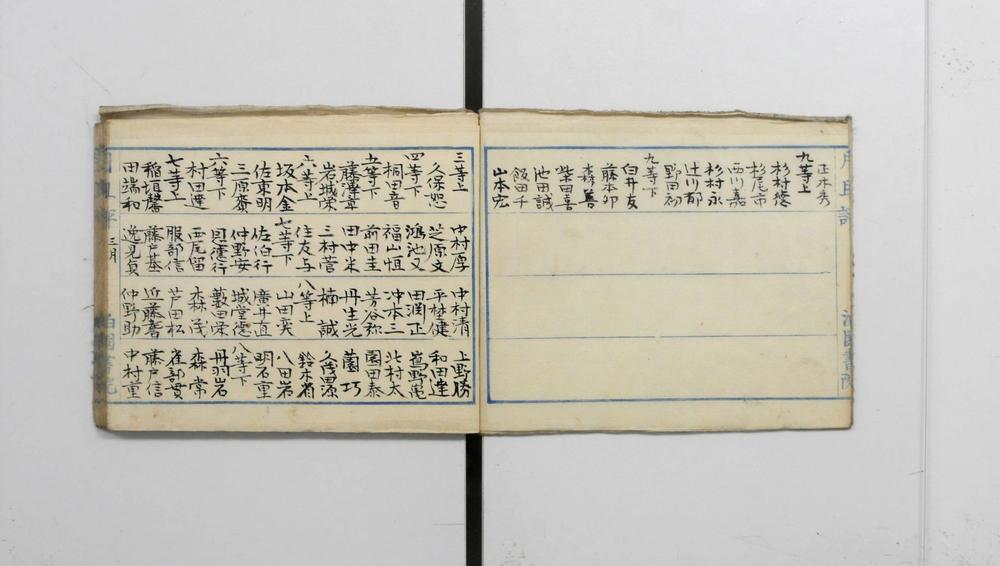 月旦評
泊園書院
正木秀
九等上
杉村悠
杉尾市
西川嘉
杉村永
辻川郁
野田初
九等下
臼井友
藤本卯
森善
柴田喜
池田誠
飯田千
山本宏
三等上
久保恕
四等下
桐田音
五等下
藤澤葦
岩城榮
六等上
坂本金
佐東明
三原
六等下
村田達
七等上
稲垣馨
田端和
中村厚
芝原文
鴻池又
福山恒
前田圭
田中米
三村菅
住友与
七等下
佐伯行
仲野安
行
西尾留
服部信
藤戸基
逸見貞
中村清
平埜健
田渕正
冲本三
芳谷弥
丹生光
楠誠
八等上
山田奕
廣井直
城堂德
藪田栄
森茂
芦田松
近藤
仲野助
上野勝
和田達
嶌野亀
北村太
園田泰
薗巧
久茂田源
鈴木省
八田岩
明石重
八等下
丹羽岩
森常
雀部貫
藤戸信
中村重
三月